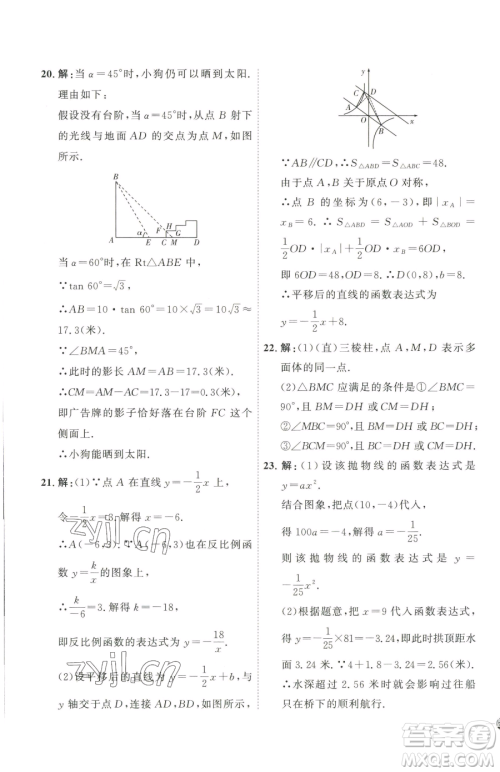 20. 解:当 α=45°时,小狗仍可以晒到太阳.
理由如下:
假设没有台阶,当 α=45°时,从点 B 射下
的光线与地面 AD 的交点为点 M,如图
所示.
B
H
F
G
α
A E C M D
当 α=60°时,在 Rt△ABE 中,
∵tan 60°=√3,
∴AB=10·tan 60°=10×√3≈
17.3(米).
∵∠BMA=45°,
∴此时的影长 AM=AB=17.3(米).
∴CM=AM-AC=17.3-17=0.3(米).
即广告牌的影子恰好落在台阶 FC 这个
侧面上.
∴小狗能晒到太阳.
21. 解:(1)∵点 A 在直线 y=-1/2x 上,
令-1/2x=3.解得 x=-6.
∴A(-6,3).∵A(-6,3)在反比例函
数 y=k/x 的图象上,
∴k/-6=3.解得 k=-18.
即反比例函数的表达式为 y=-18/x.
(2)设平移后的直线 y=-1/2x+b,与
y 轴交于点 D,连接 AD,BD,如图所示.
y
C
D
A
O
x
B
∵AB∥CD,∴S△ABD=S△ABC=48.
由于点 A,B 关于原点 O 对称,
∴点 B 的坐标为(6,-3),即|xA|=
|xB|=6.∴S△ABD=S△AOD+S△BOD=
1/2OD·|xA|+1/2OD·|xB|=6OD=48.
即 6OD=48,∴OD=8.∴D(0,8),b=8.
∴平移后的直线的函数表达式为
y=-1/2x+8.
22. 解:(1)(直)三棱柱,点 A,M,D 表示多
面体的同一点.
(2)△BMC 应满足的条件是①∠BMC=
90°,且 BM=DH 或 CM=DH;
②∠MBC=90°,且 BM=DH 或 BC=DH;
③∠BCM=90°,且 BC=DH 或 CM=DH.
23. 解:(1)设该抛物线的函数表达式是
y=ax².
结合图象,把点(10,-4)代入,
得 100a=-4,解得 a=-1/25.
则该抛物线的函数表达式是 y=
-1/25x².
(2)根据题意,把 x=9 代入函数表达式,
得 y=-1/25×81=-3.24,即拱顶距离水
面是 3.24 米.则 2+4-3.24=2.76.
∴水深超过 2.76 米时就会影响过往船
只在桥下的顺利航行.
zyjl.cn
zyjl.cn
答案圈
MXQE.COM